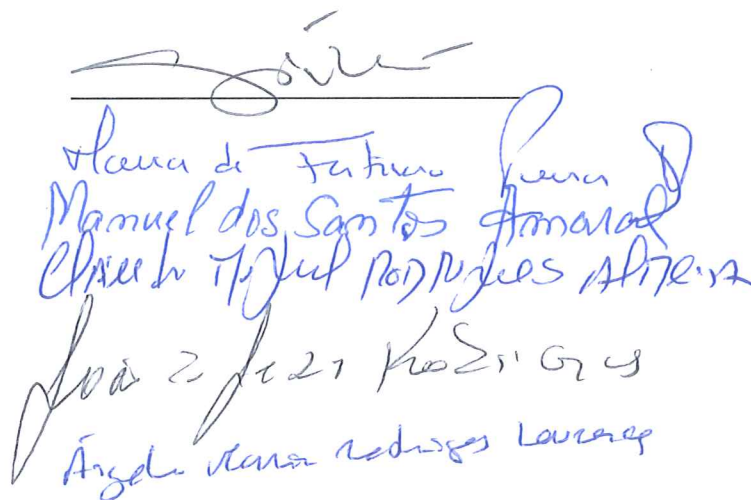 Maria de Fatima
Manuel dos Santos Amaral
Cláudio Miguel Rodrigues Almeida
João Rodrigues
Ângela Maria Rodrigues Lourenço